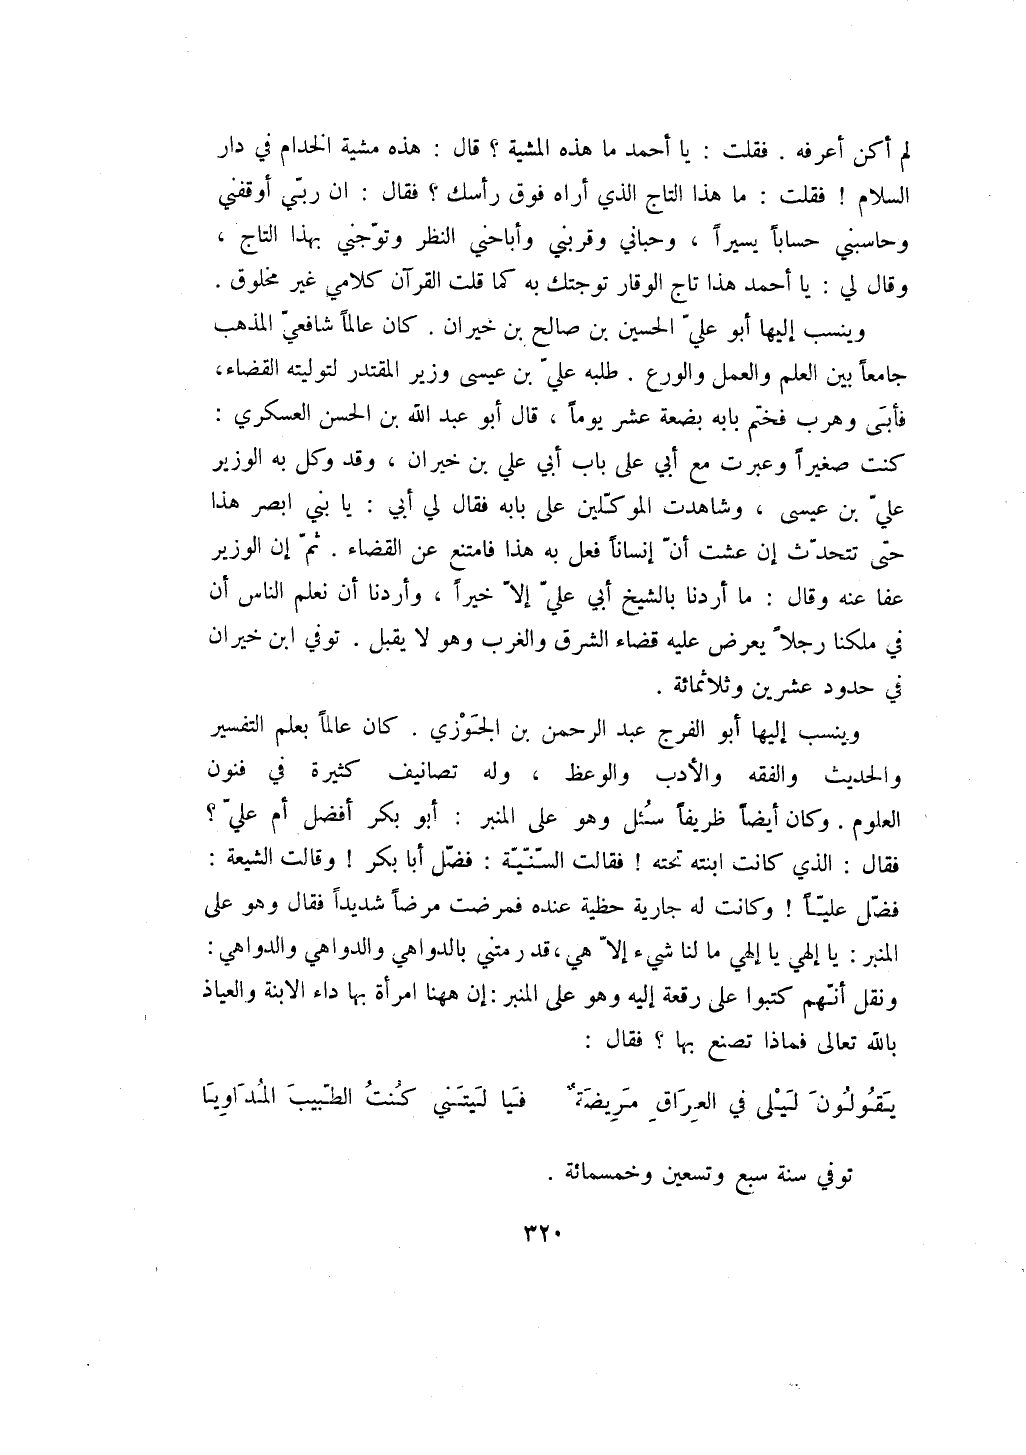 لم أكن أعرفه . فقلت : يا أحمد ما هذه المشية ؟ قال : هذه مشية الخدام في دار
السلام ! فقلت : ما هذا التاج الذي أراه فوق رأسك ؟ فقال : ان ربّي أوقفني
وحاسبني حساباً يسيراً ، وحباني وقربني وأباحني النظر وتوّجني بهذا التاج ،
وقال لي : يا أحمد هذا تاج الوقار توجتك به كما قلت القرآن كلامي غير مخلوق .
وينسب إليها أبو عليّ الحسين بن صالح بن خيران . كان عالماً شافعيّ المذهب
جامعاً بين العلم والعمل والورع . طلبه عليّ بن عيسى وزير المقتدر لتوليته القضاء،
فأبَى وهرب فختّم بابه بضعة عشر يوماً ، قال أبو عبد الله بن الحسن العسكري :
كنت صغيراً وعبرت مع أبي على باب أبي علي بن خيران ، وقد وكل به الوزير
عليّ بن عيسى ، وشاهدت الموكّلين على بابه فقال لي أبي : يا بني ابصر هذا
حتّى تتحدّث إن عشت أنّ إنساناً فعل به هذا فامتنع عن القضاء . ثمّ إن الوزير
عفا عنه وقال : ما أردنا بالشيخ أبي عليّ إلاّ خيراً ، وأردنا أن نعلم الناس أن
في ملكنا رجلاً يعرض عليه قضاء الشرق والغرب وهو لا يقبل . توفي ابن خيران
في حدود عشرين وثلاثمائة .
وينسب إليها أبو الفرج عبد الرحمن بن الجَوْزي . كان عالماً بعلم التفسير
والحديث والفقه والأدب والوعظ ، وله تصانيف كثيرة في فنون
العلوم . وكان أيضاً ظريفاً سُئل وهو على المنبر : أبو بكر أفضل أم عليّ ؟
فقال : الذي كانت ابنته تحته ! فقالت السّنّيّة : فضّل أبا بكر ! وقالت الشيعة :
فضّل عليّاً ! وكانت له جارية حظية عنده فمرضت مرضاً شديداً فقال وهو على
المنبر : يا إلهي يا إلهي ما لنا شيء إلاّ هي، قد رمتني بالدواهي والدواهي والدواهي :
ونقل أنّهم كتبوا على رقعة إليه وهو على المنبر : إن ههنا امرأة بها داء الابنة والعياذ
بالله تعالى فماذا تصنع بها ؟ فقال :
يَقُولُونَ لَيْلى في العِرَاقِ مَرِيضَةٌ فَيا لَيتَني كُنتُ الطّبيبَ المُدَاوِيَا
توفي سنة سبع وتسعين وخمسمائة .
٣٢٠